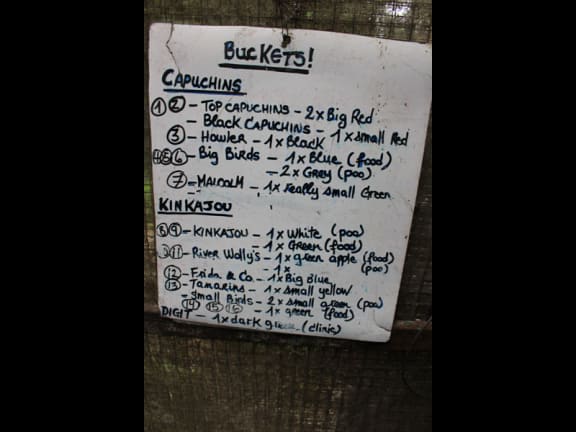 BUCKETS!
CAPUCHINS
① ② - TOP CAPUCHINS - 2 x Big Red
- BLACK CAPUCHINS - 1 x small Red
③ - Howler - 1 x Black
④⑤⑥ - Big Birds - 1 x Blue (food)
- 2 x Grey (poo)
⑦ - MALCOLM - 1 x really small Green
KINKAJOU
⑧⑨ - KINKAJOU - 1 x White (poo)
- 1 x Green (food)
⑪ - River Wolly's - 1 x green apple (food)
- 1 x (poo)
⑫ - Frida & Co - 1 x Big Blue
⑬ - Tamarins - 1 x small yellow
- Small Birds - 2 x small green (poo)
⑭ ⑮ ⑯ - 1 x green (food)
DIGIT - 1 x dark green (clinic)